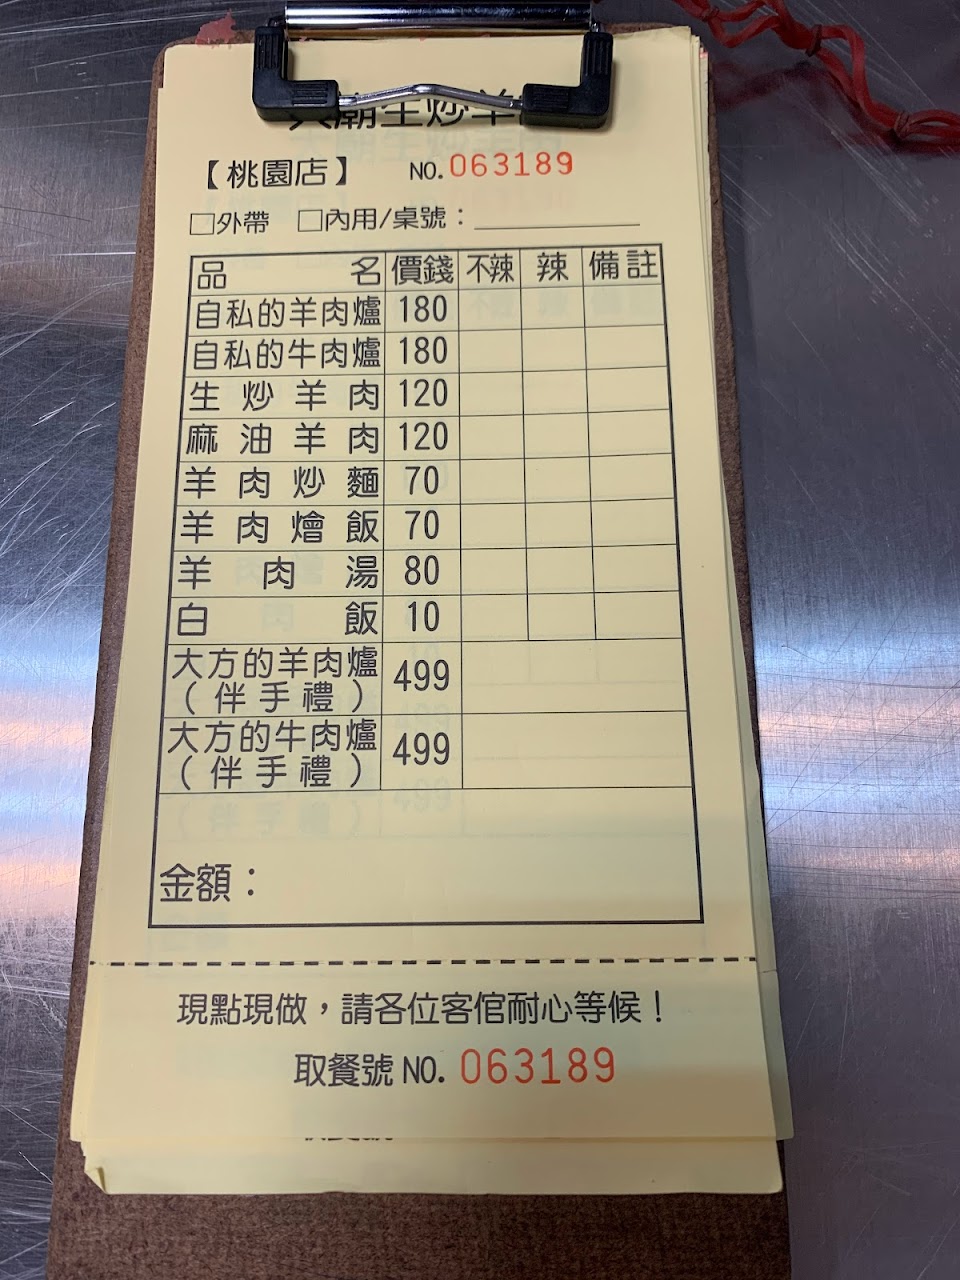 廟生炒羊
【桃園店】 NO.063189
□外帶 □內用/桌號：
品名 價錢 不辣 辣 備註
自私的羊肉爐 180
自私的牛肉爐 180
生炒羊肉 120
麻油羊肉 120
羊肉炒麵 70
羊肉燴飯 70
羊肉湯 80
白飯 10
大方的羊肉爐
（伴手禮） 499
大方的牛肉爐
（伴手禮） 499
金額：
現點現做，請各位客倌耐心等候！
取餐號 NO. 063189